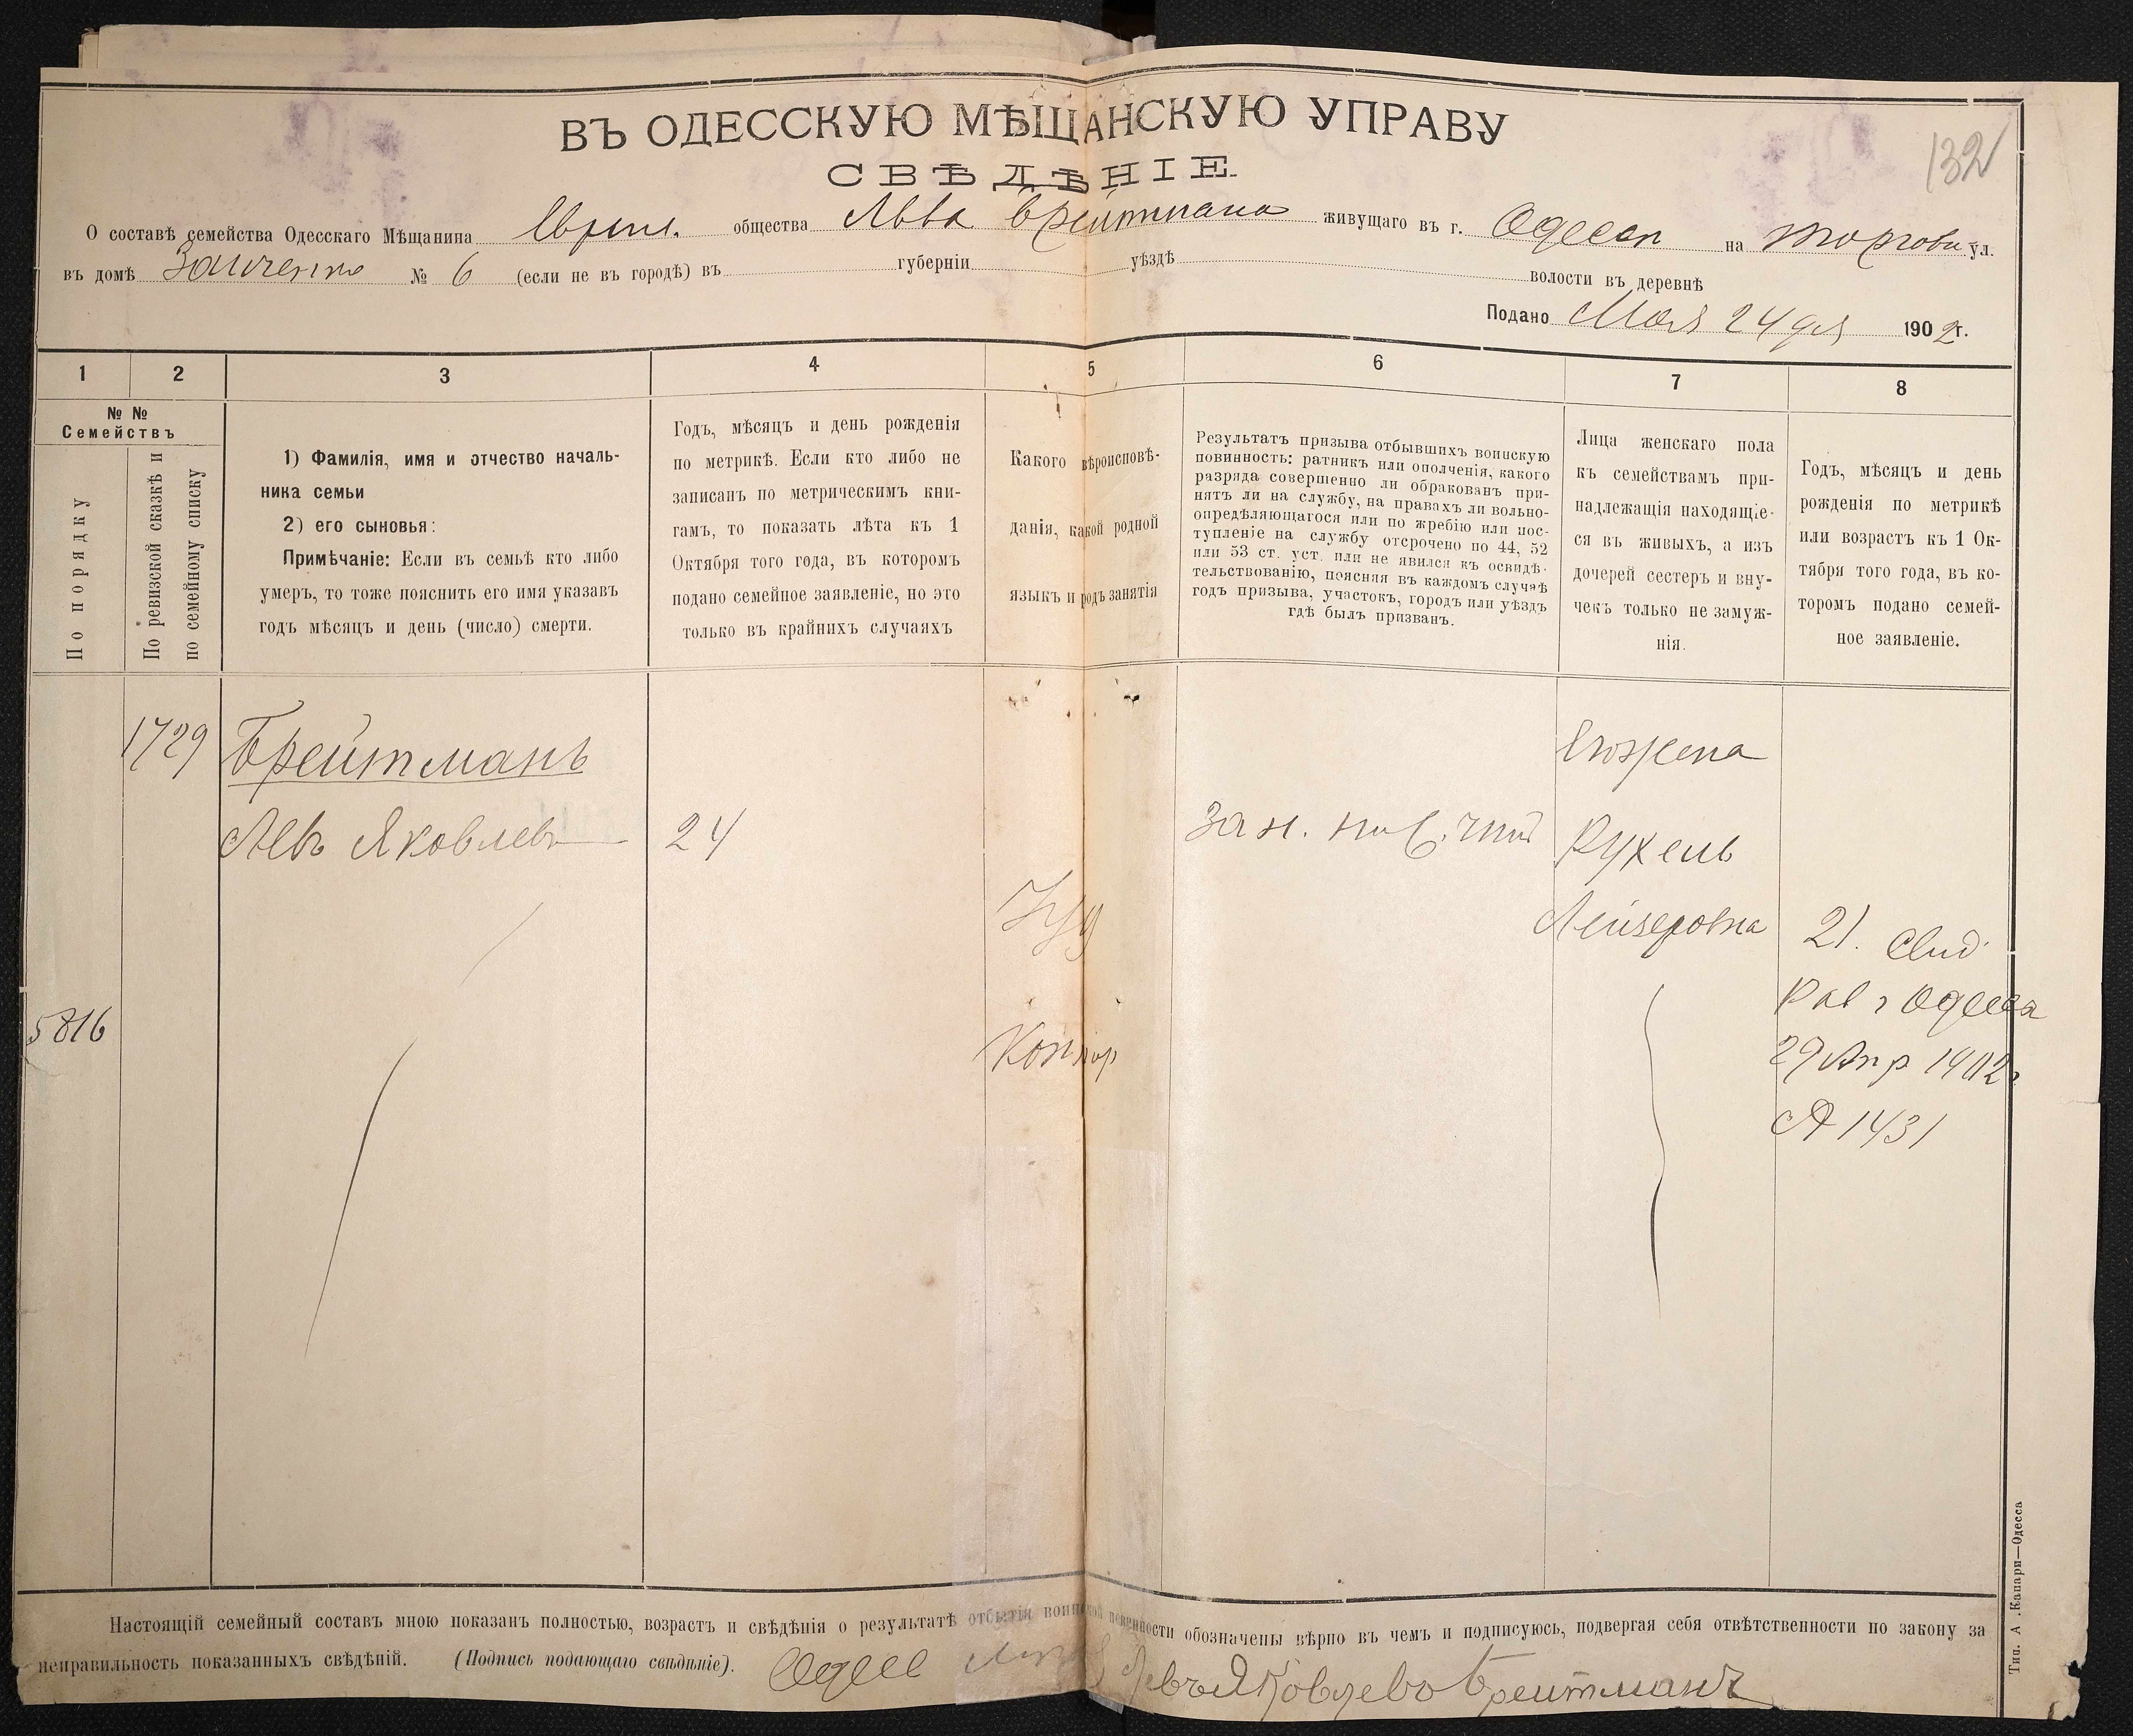 132
ВЪ ОДЕССКУЮ МѢЩАНСКУЮ УПРАВУ
СВѢДѢНІЕ
О составѣ семейства Одесскаго Мѣщанина общества Льва Брейтмана живущаго въ г. Одессѣ на Торгов. ул.
въ домѣ № 6 (если не въ городѣ) въ губерніи уѣздѣ волости въ деревнѣ
Подано Мая 24 дня 1902 г.
1 2 3 4 5 6 7 8
№ №
Семействъ
По порядку
По ревизской сказкѣ и
по семейному списку
1) Фамилія, имя и отчество началь-
ника семьи
2) его сыновья:
Примѣчаніе: Если въ семьѣ кто либо
умеръ, то тоже пояснить его имя указавъ
годъ мѣсяцъ и день (число) смерти.
Годъ, мѣсяцъ и день рожденія
по метрикѣ. Если кто либо не
записанъ по метрическимъ кни-
гамъ, то показать лѣта къ 1
Октября того года, въ которомъ
подано семейное заявленіе, но это
только въ крайнихъ случаяхъ
Какого вѣроисповѣ-
данія, какой родной
языкъ и родъ занятія
Результатъ призыва отбывшихъ воинскую
повинность: ратникъ или ополченія, какого
разряда совершенно ли обракованъ при-
нятъ ли на службу, на правахъ ли вольно-
опредѣляющагося или по жребію или пос-
тупленіе на службу отсрочено по 44, 52
или 53 ст. уст. или не явился къ освидѣ-
тельствованію, поясняя въ каждомъ случаѣ
годъ призыва, участокъ, городъ или уѣздъ
гдѣ былъ призванъ.
Лица женскаго пола
къ семействамъ при-
надлежащія находящіе-
ся въ живыхъ, а изъ
дочерей сестеръ и вну-
чекъ только не замуж-
нія.
Годъ, мѣсяцъ и день
рожденія по метрикѣ
или возрастъ къ 1 Ок-
тября того года, въ ко-
торомъ подано семей-
ное заявленіе.
1729 Брейтманъ
Его жена
Левъ Яковлев 24
Рухель
Іуд
Лейзеровна 21. Свид
Рав г Одесса
5816
29 Апр 1902 г
1431
Настоящій семейный составъ мною показанъ полностью, возрастъ и свѣдѣнія о результатѣ отбытія воинской повинности обозначены вѣрно въ чемъ и подписуюсь, подвергая себя отвѣтственности по закону за
неправильность показанныхъ свѣдѣній. (Подпись подающаго свѣдѣніе). Левъ Яковлевъ Брейтманъ
Тип. А. Капари—Одесса